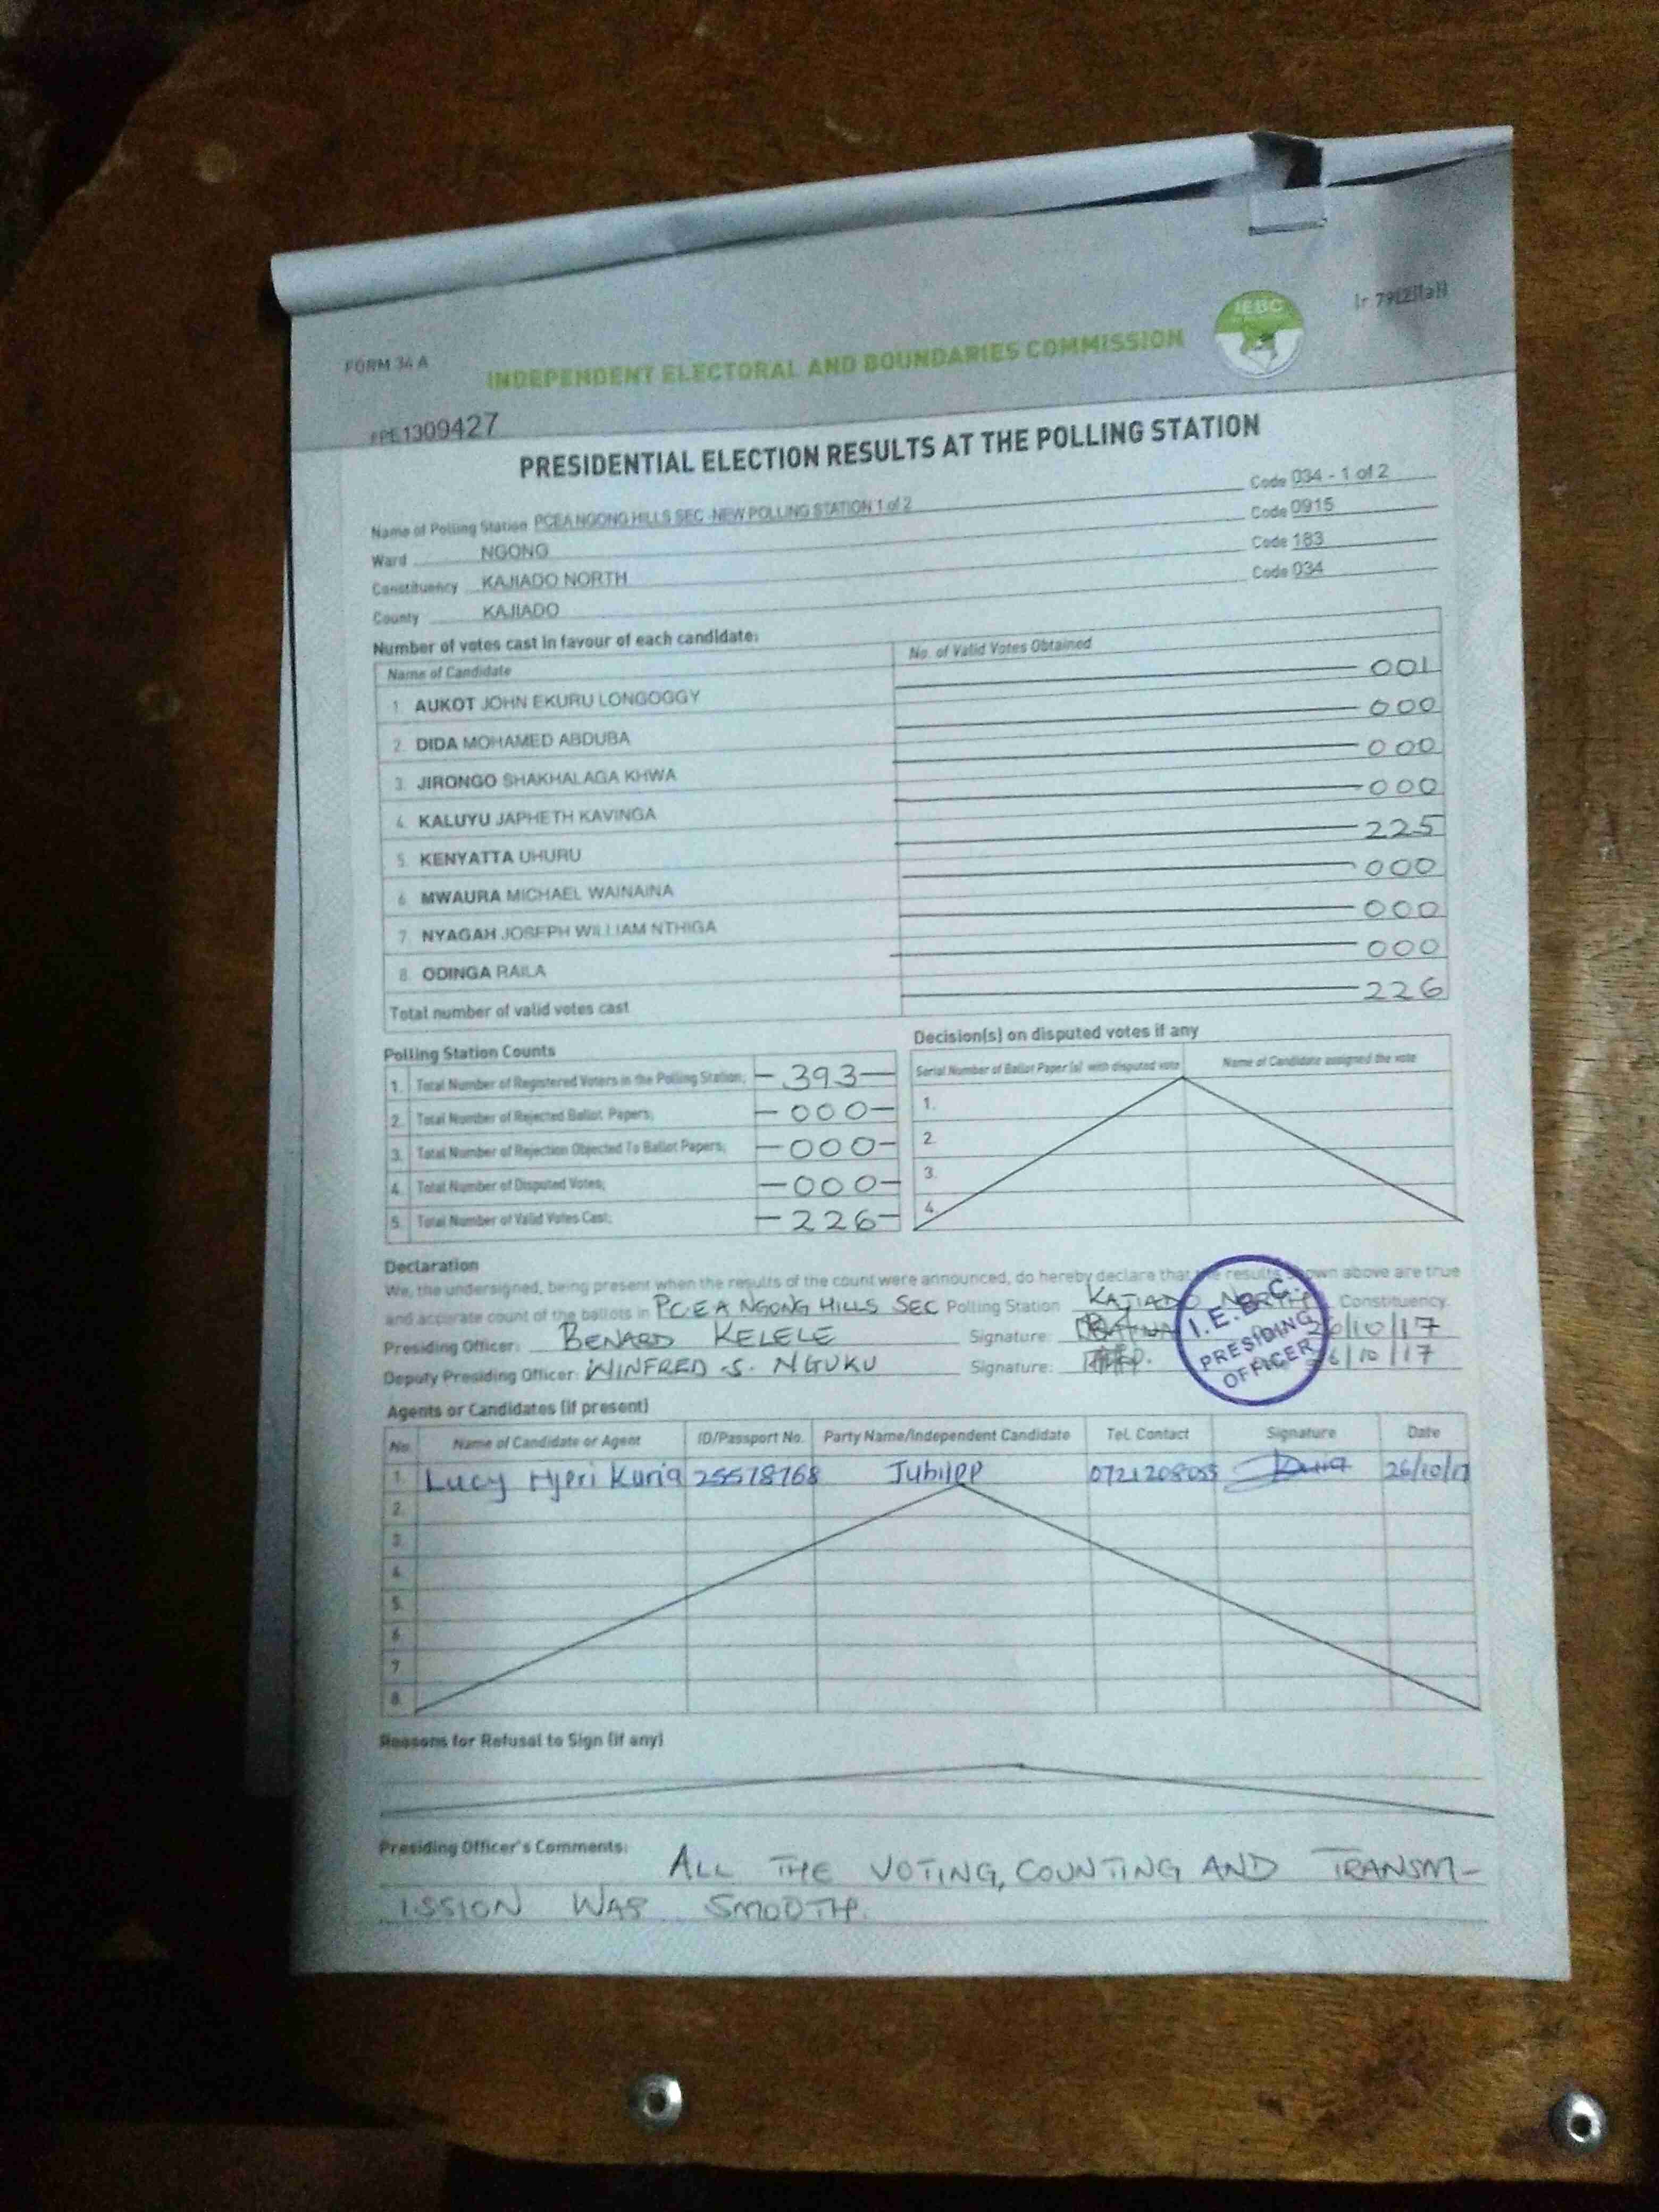 FORM 34 A
INDEPENDENT ELECTORAL AND BOUNDARIES COMMISSION
IEBC
1309427
PRESIDENTIAL ELECTION RESULTS AT THE POLLING STATION
Name of Polling Station PCEA NGONG HILLS SEC -NEW POLLING STATION 1 of 2 Code 034 - 1 of 2
Ward NGONG Code 0915
Constituency KAJIADO NORTH Code 183
County KAJIADO Code 034
Number of votes cast in favour of each candidate:
Name of Candidate No. of Valid Votes Obtained
1. AUKOT JOHN EKURU LONGOGGY 001
2. DIDA MOHAMED ABDUBA 000
3. JIRONGO SHAKHALAGA KHWA 000
4. KALUYU JAPHETH KAVINGA 000
5. KENYATTA UHURU 225
6. MWAURA MICHAEL WAINAINA 000
7. NYAGAH JOSEPH WILLIAM NTHIGA 000
8. ODINGA RAILA 000
Total number of valid votes cast 226
Polling Station Counts
1. Total Number of Registered Voters in the Polling Station; 393
2. Total Number of Rejected Ballot Papers; 000
3. Total Number of Rejection Objected To Ballot Papers; 000
4. Total Number of Disputed Votes; 000
5. Total Number of Valid Votes Cast; 226
Decision(s) on disputed votes if any
Serial Number of Ballot Paper(s) with disputed vote Name of Candidate assigned the vote
1.
2.
3.
4.
Declaration
We, the undersigned, being present when the results of the count were announced, do hereby declare that the results shown above are true
and accurate count of the ballots in P.C.E.A NGONG HILLS SEC Polling Station KAJIADO NORTH Constituency
Presiding Officer: BENARD KELELE Signature: 26/10/17
Deputy Presiding Officer: WINFRED S. NGUKU Signature: 26/10/17
I.E.B.C.
PRESIDING
OFFICER
Agents or Candidates (if present)
No. Name of Candidate or Agent ID/Passport No. Party Name/Independent Candidate Tel. Contact Signature Date
1. Lucy Njeri Kuria 25578768 Jubilee 0721208055 26/10/17
2.
3.
4.
5.
6.
7.
8.
Reasons for Refusal to Sign (if any)
Presiding Officer's Comments: ALL THE VOTING, COUNTING AND TRANSM-
ISSION WAS SMOOTH.